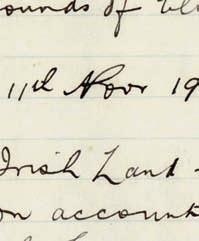 ounds of
11th Novr 19
Irish Land
on account